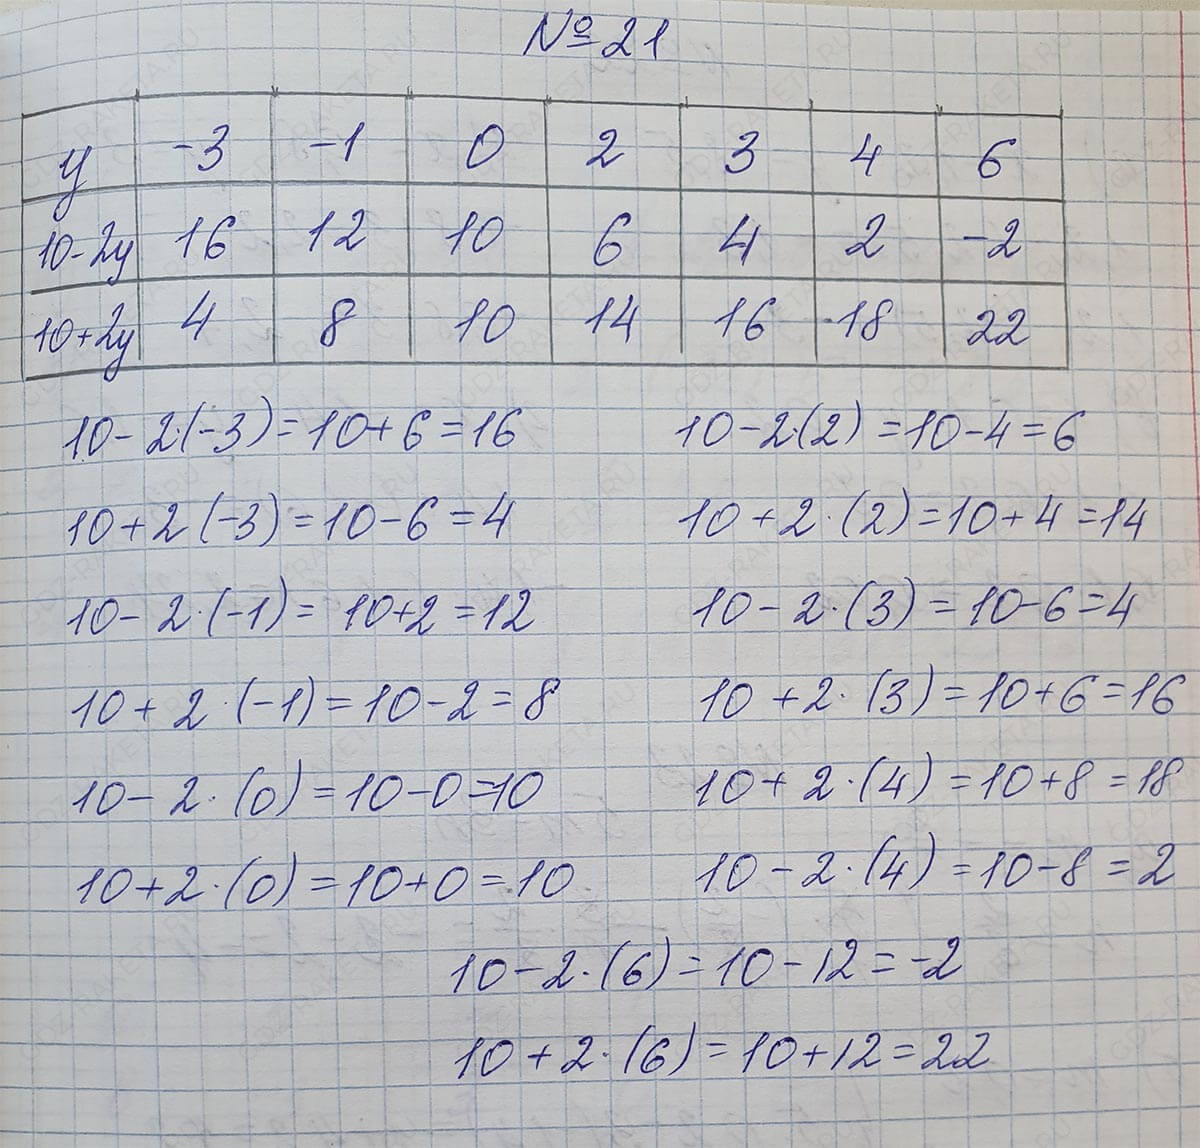 №21
у -3 -1 0 2 3 4 6
10-2у 16 12 10 6 4 2 -2
10+2у 4 8 10 14 16 18 22
10-2·(-3)=10+6=16
10-2·(2)=10-4=6
10+2(-3)=10-6=4
10+2·(2)=10+4=14
10-2·(-1)=10+2=12
10-2·(3)=10-6=4
10+2·(-1)=10-2=8
10+2·(3)=10+6=16
10-2·(0)=10-0=10
10+2·(4)=10+8=18
10+2·(0)=10+0=10
10-2·(4)=10-8=2
10-2·(6)=10-12=-2
10+2·(6)=10+12=22